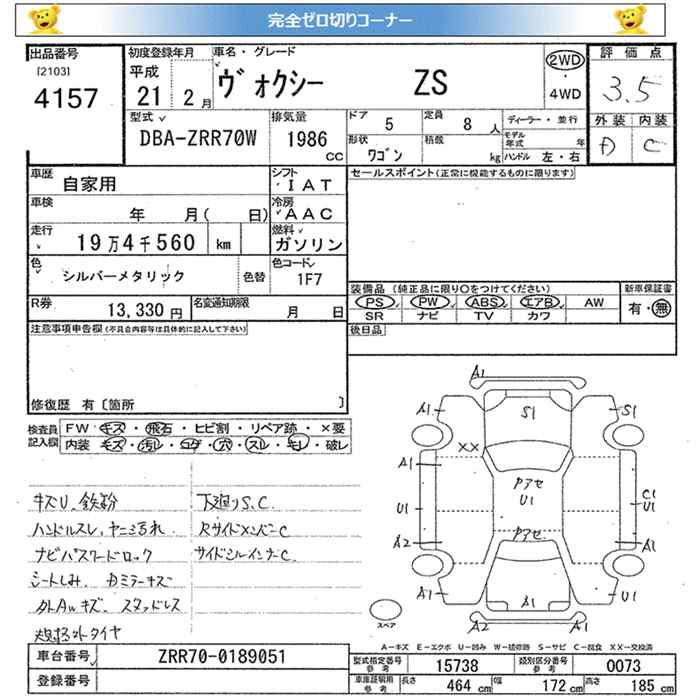 完全ゼロ切りコーナー
出品番号 初度登録年月 車名・グレード 評価点
[2103] 平成 ヴォクシー ZS 2WD・4WD 3.5
4157 21年 2月
外装 内装
型式 排気量 ドア 5 定員 8人 ディーラー・並行
DBA-ZRR70W 1986 CC 形状 ワゴン 積載 kg モデル年式 年 ハンドル 左・右 D C
車歴 自家用 シフト IAT セールスポイント(正常に機能するものに限ります)
車検 年 月( 日) 冷房 AAC
走行 19万4千560 km 燃料 ガソリン
色 シルバーメタリック 色替 色コード 1F7
装備品(純正品に限り○をつけてください) 新車保証書
R券 13,330円 名変通知期限 月 日 PS PW ABS エアB AW 有・無
SR ナビ TV カワ
注意事項申告欄(不具合内容等は具体的に記入して下さい) 後日品
修復歴 有〔箇所 〕
検査員記入欄 FW キズ・飛石・ヒビ割・リペア跡・×要
内装 キズ・汚レ・コゲ・穴・スレ・モレ・破レ
A1 A1
A1 S1 S1
XX
A1 Pアセ U1
U1 C1 U1
A2 Pアセ A1
A1 A1 U1
A2 A1
スペア
キズU.鉄粉 下廻りS.C
ハンドルスレ.ヤニ汚れ. RサイドメンバーC
ナビパスワードロック サイドシルインナーC.
シートしみ. Dミラーキズ
外AWキズ. スタッドレス
規格外タイヤ
A-キズ E-エクボ U-凹み W-補修跡 S-サビ C-腐食 XX-交換済
車台番号 ZRR70-0189051 型式指定番号 参考 15738 類別区分番号 参考 0073
登録番号 車庫証明用 参考 長さ 464 cm 幅 172 cm 高さ 185 cm